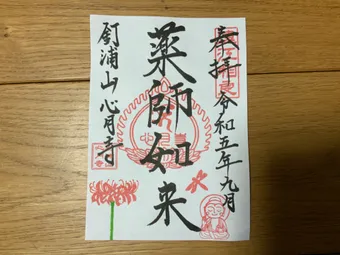 奉拝 令和五年九月
薬師如来
釘浦山 心月寺